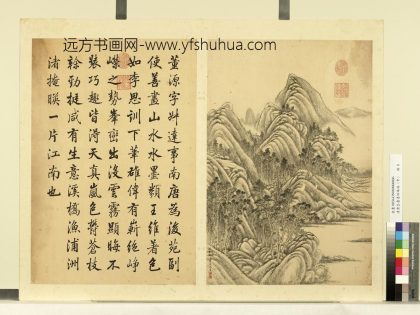 远方书画网- www.yfshuhua.com
董源字叔達事南唐為後苑副
使善畫山水水墨類王維著色
如李思訓下筆雄偉有嶄絕崢
嶸之勢峯巒出沒雲霧顯晦不
裝巧趣皆得天真嵐色鬱蒼枝
榦勁挺咸有生意溪橋漁浦洲
渚掩暎一片江南也